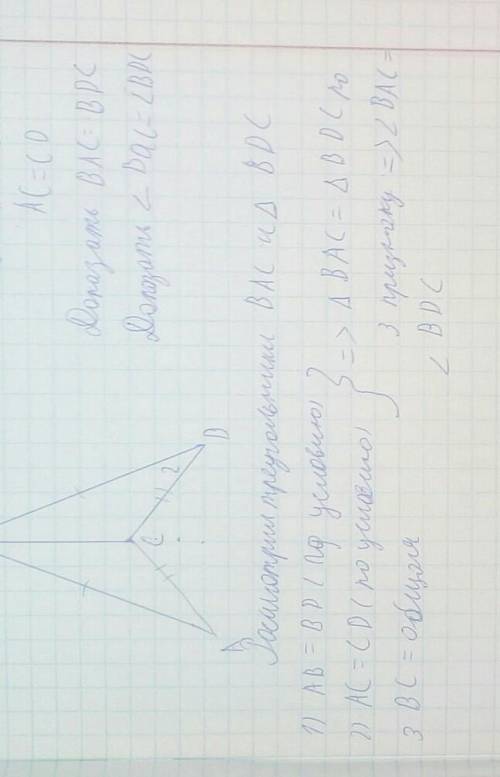 AC = CD
Доказать BAC = BDC
Доказать ∠ BAC = ∠BDC
C
2
D
A
Рассмотрим треугольники BAC и Δ BDC
1) AB = BD (по условию)
2) AC = CD (по условию)
3 BC = общая
=> Δ BAC = Δ BDC по
3 признаку => ∠ BAC =
∠ BDC